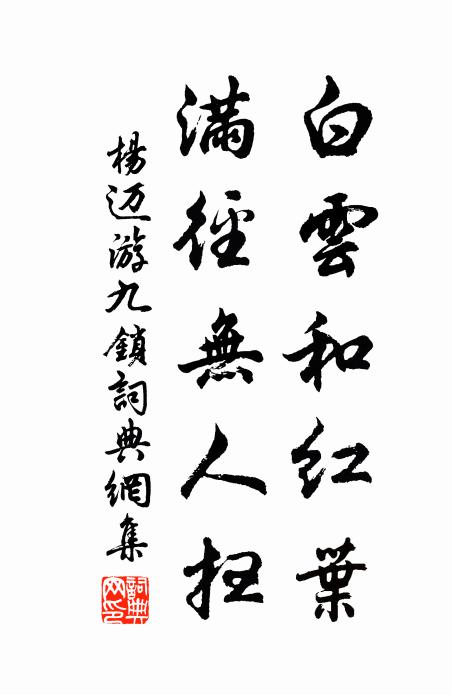 白雲和紅葉
滿徑無人扫
楊迈游九鎖詞典網集
詞典網印